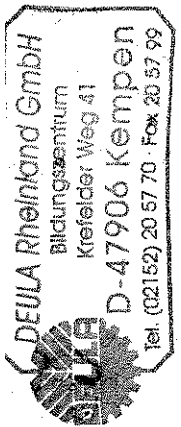 DEULA Rheinland GmbH
Bildungszentrum
Krefelder Weg 41
D-47906 Kempen
Tel. (02152) 20 57 70 · Fax 20 57 99
DEULA